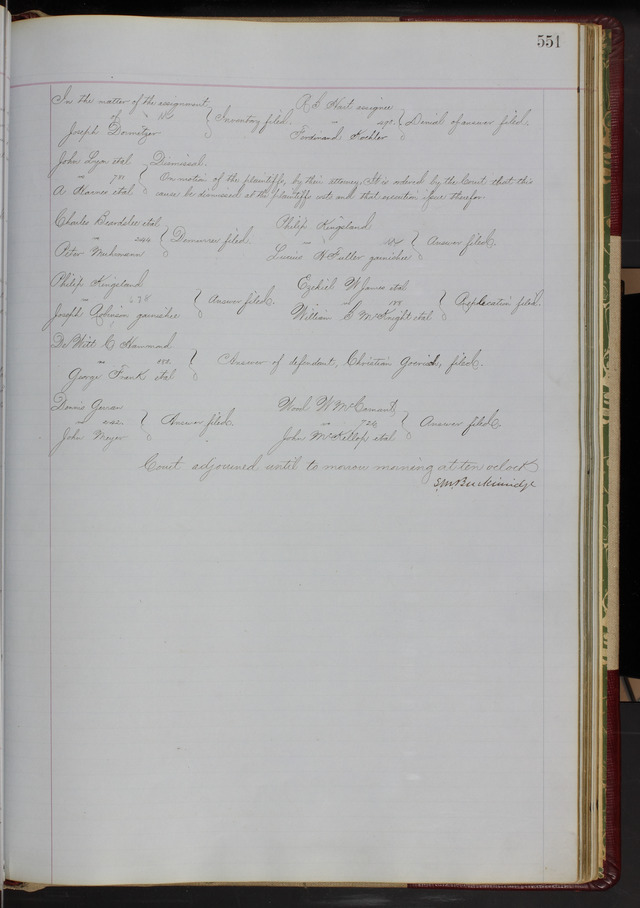 551
In the matter of the assignment
of
Joseph } Inventory filed.
R S Hart assignee
vs
Ferdinand Kochler } Denial of answer filed.
John Lyon etal
vs 788
A Raines etal } Dismissal.
On motion of the plaintiffs, by their attorney, It is ordered by the Court that this
cause be dismissed at the plaintiffs costs and that execution issue therefor.
Charles Beardslee etal
vs 244
Peter } Demurrer filed.
Philip Kingsland
vs
Lucius H Fuller garnishee } Answer filed.
Philip Kingsland
vs 678
Joseph Robinson garnishee } Answer filed.
Ezekiel W Jones etal
vs
William S McKnight etal } Replication filed.
De Witt C Hammond
vs
George Frank etal } Answer of defendant, Christian filed.
Dennis
vs
John Meyer } Answer filed.
W McCormant
vs 726
John McKellop etal } Answer filed.
Court adjourned until to morrow morning at ten oclock
S.M. Breckinridge